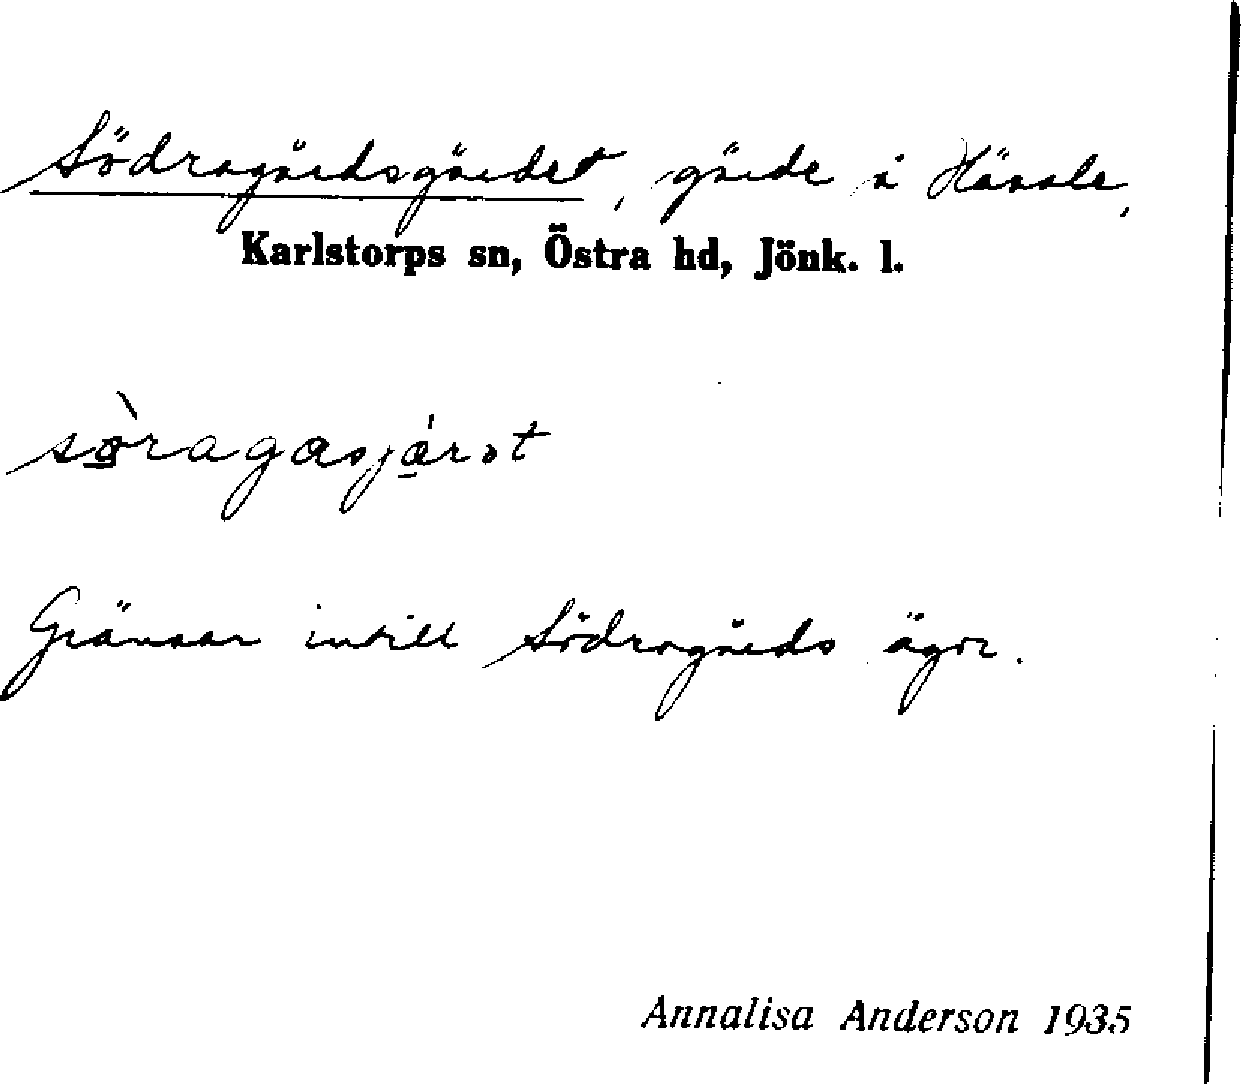 Södragärdsgärdet, gärde i Hässle,
Karlstorps sn, Östra hd, Jönk. l.
sǿ̀ragasjárət
Gränsar intill Södragärds ägor.
Annalisa Anderson 1935